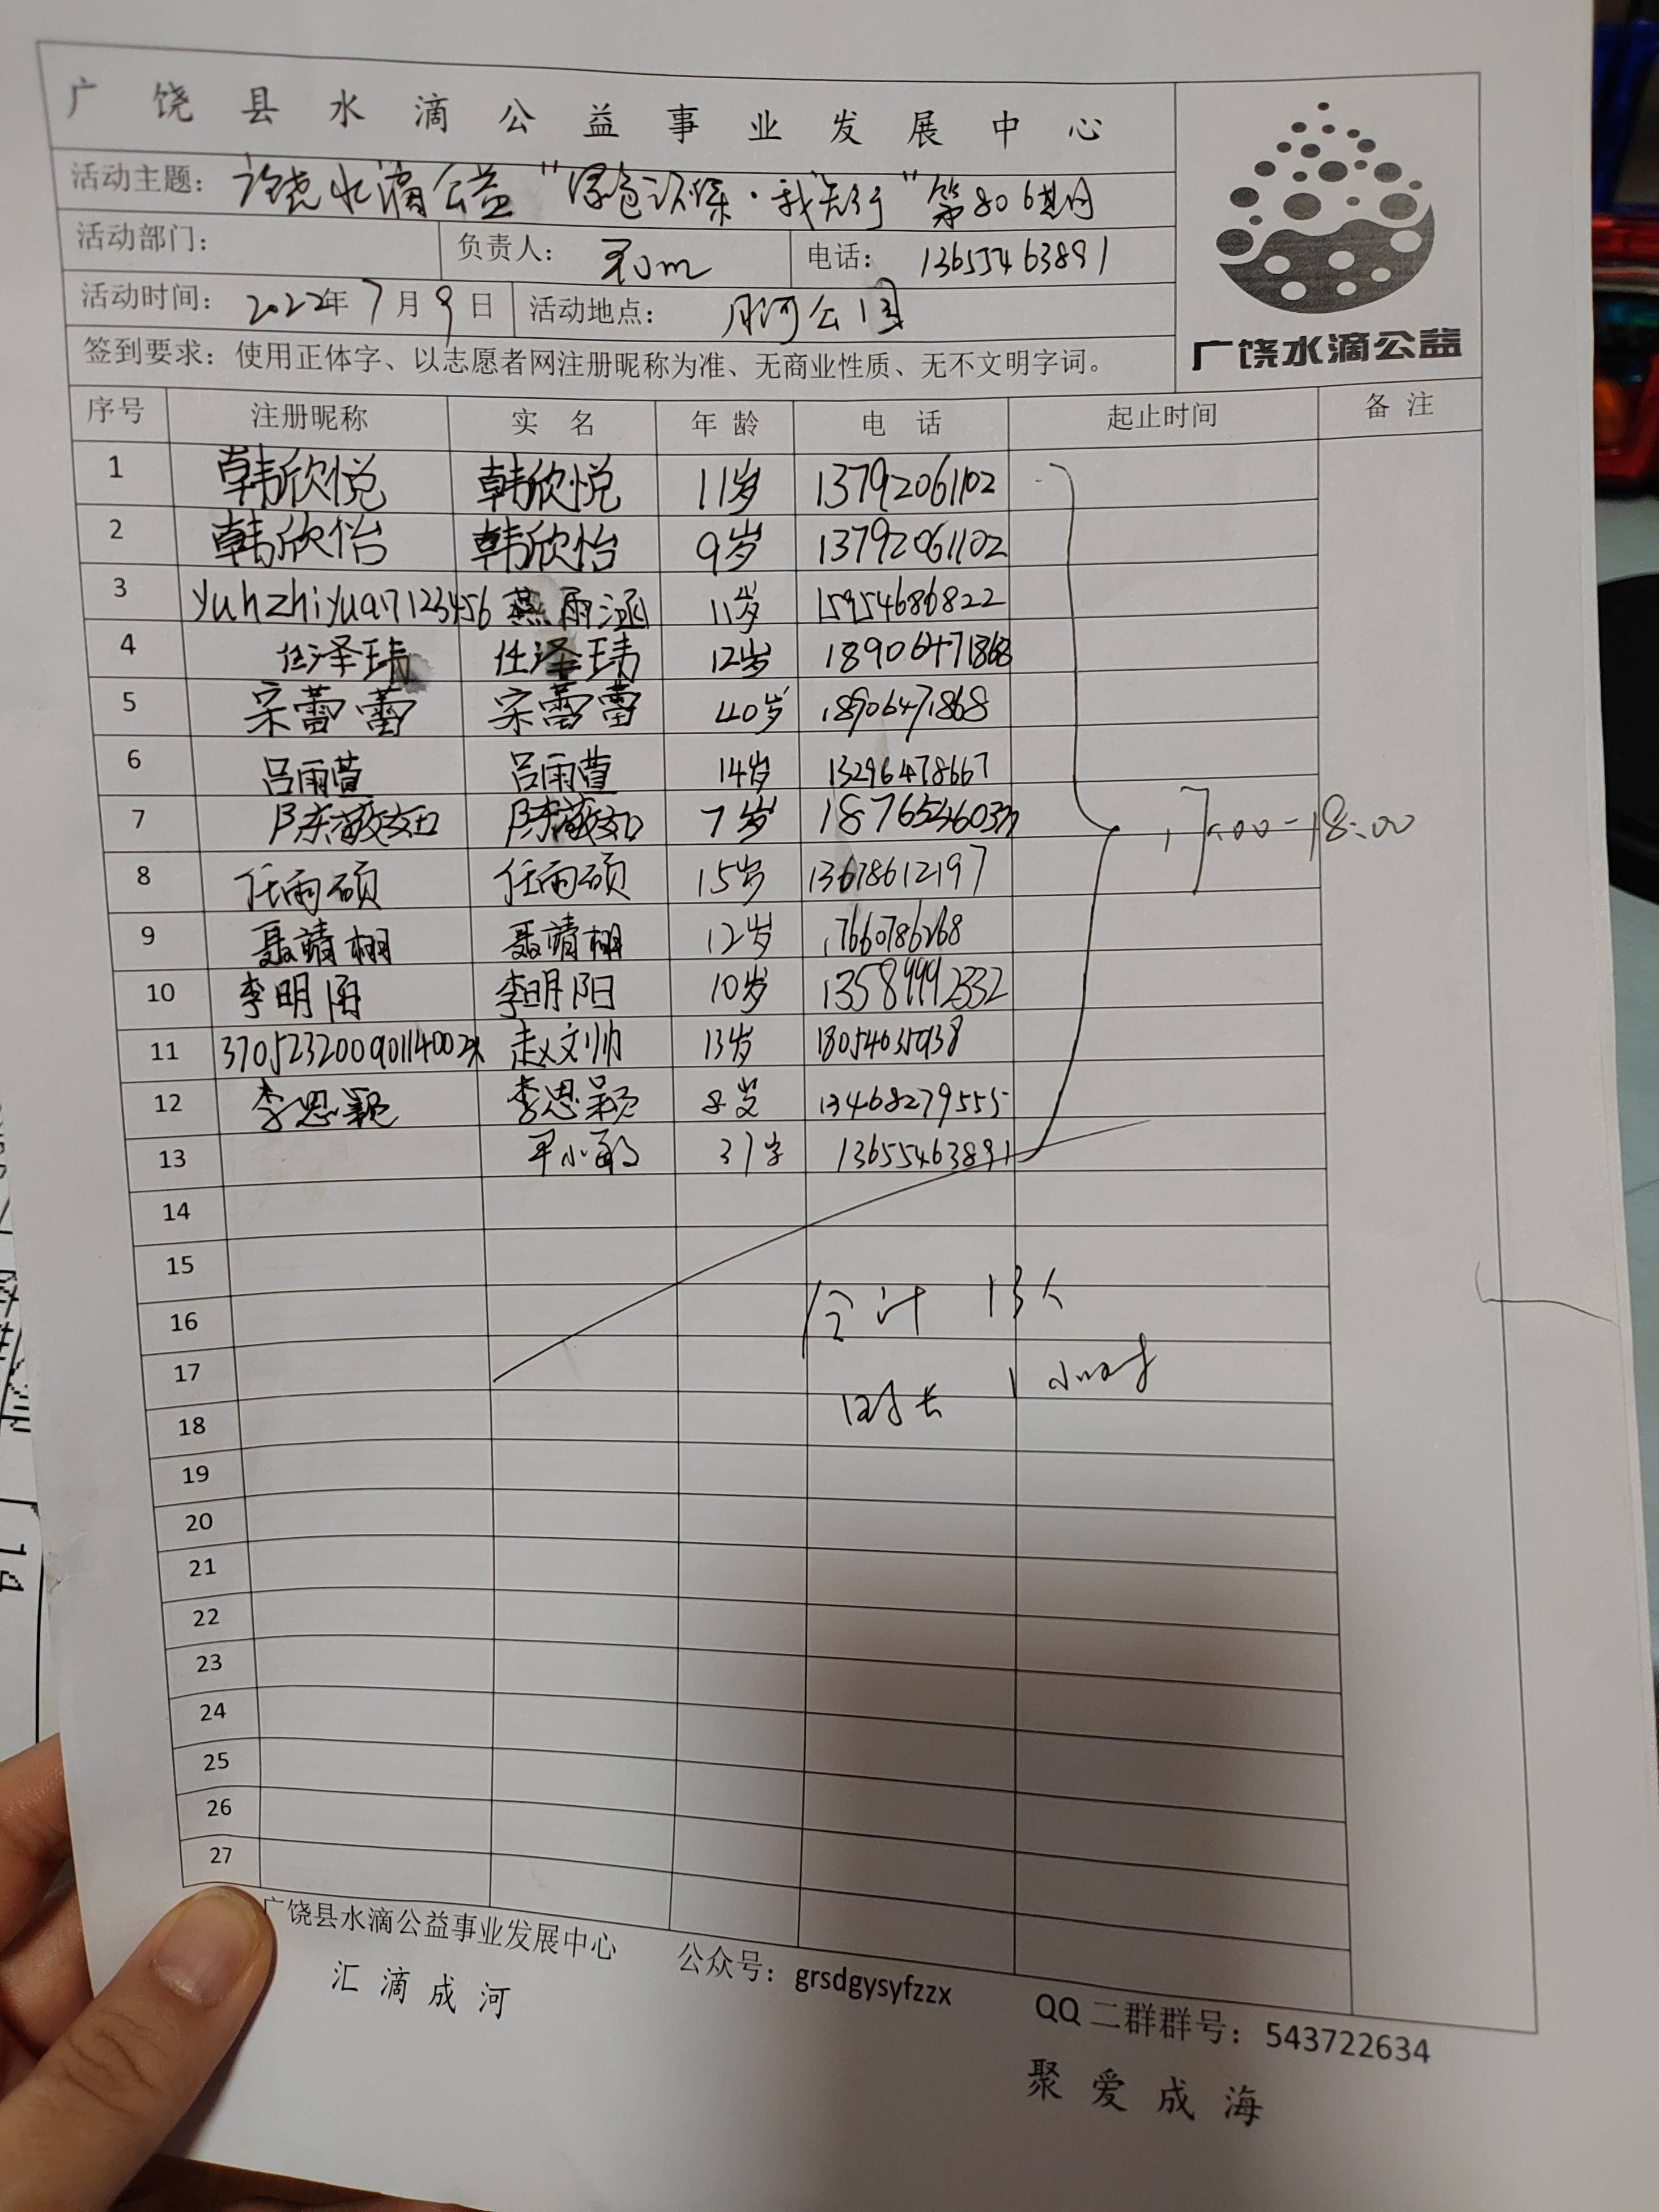 广饶县水滴公益事业发展中心
活动主题：广饶水滴公益“绿色环保·我先行”第806期
广饶水滴公益
活动部门： 负责人： 电话：13655463891
活动时间：2022年7月9日 活动地点：月河公园
签到要求：使用正体字、以志愿者网注册昵称为准、无商业性质、无不文明字词。
序号 注册昵称 实名 年龄 电话 起止时间 备注
1 韩欣悦 韩欣悦 11岁 13792061102
2 韩欣怡 韩欣怡 9岁 13792061102
3 燕雨涵 11岁 15954686822
4 任泽玮 任泽玮 12岁
5 宋蕾蕾 宋蕾蕾 40岁 18906471868
6 吕雨萱 吕雨萱 14岁 13296478667
7 陈薇如 陈薇如 7岁
17:00-18:00
8 任雨硕 任雨硕 15岁 13678612197
9 聂靖栩 聂靖栩 12岁 17660786268
10 李明阳 李明阳 10岁 13589992332
11 赵文帅 13岁
12 李思颖 李思颖 8岁 13468279555
13 37岁 13655463891
14
15
16 合计 13人
17
时长 1小时
18
19
20
21
22
23
24
25
26
27
广饶县水滴公益事业发展中心 公众号：grsdgysyfzzx QQ二群群号：543722634
汇滴成河 聚爱成海